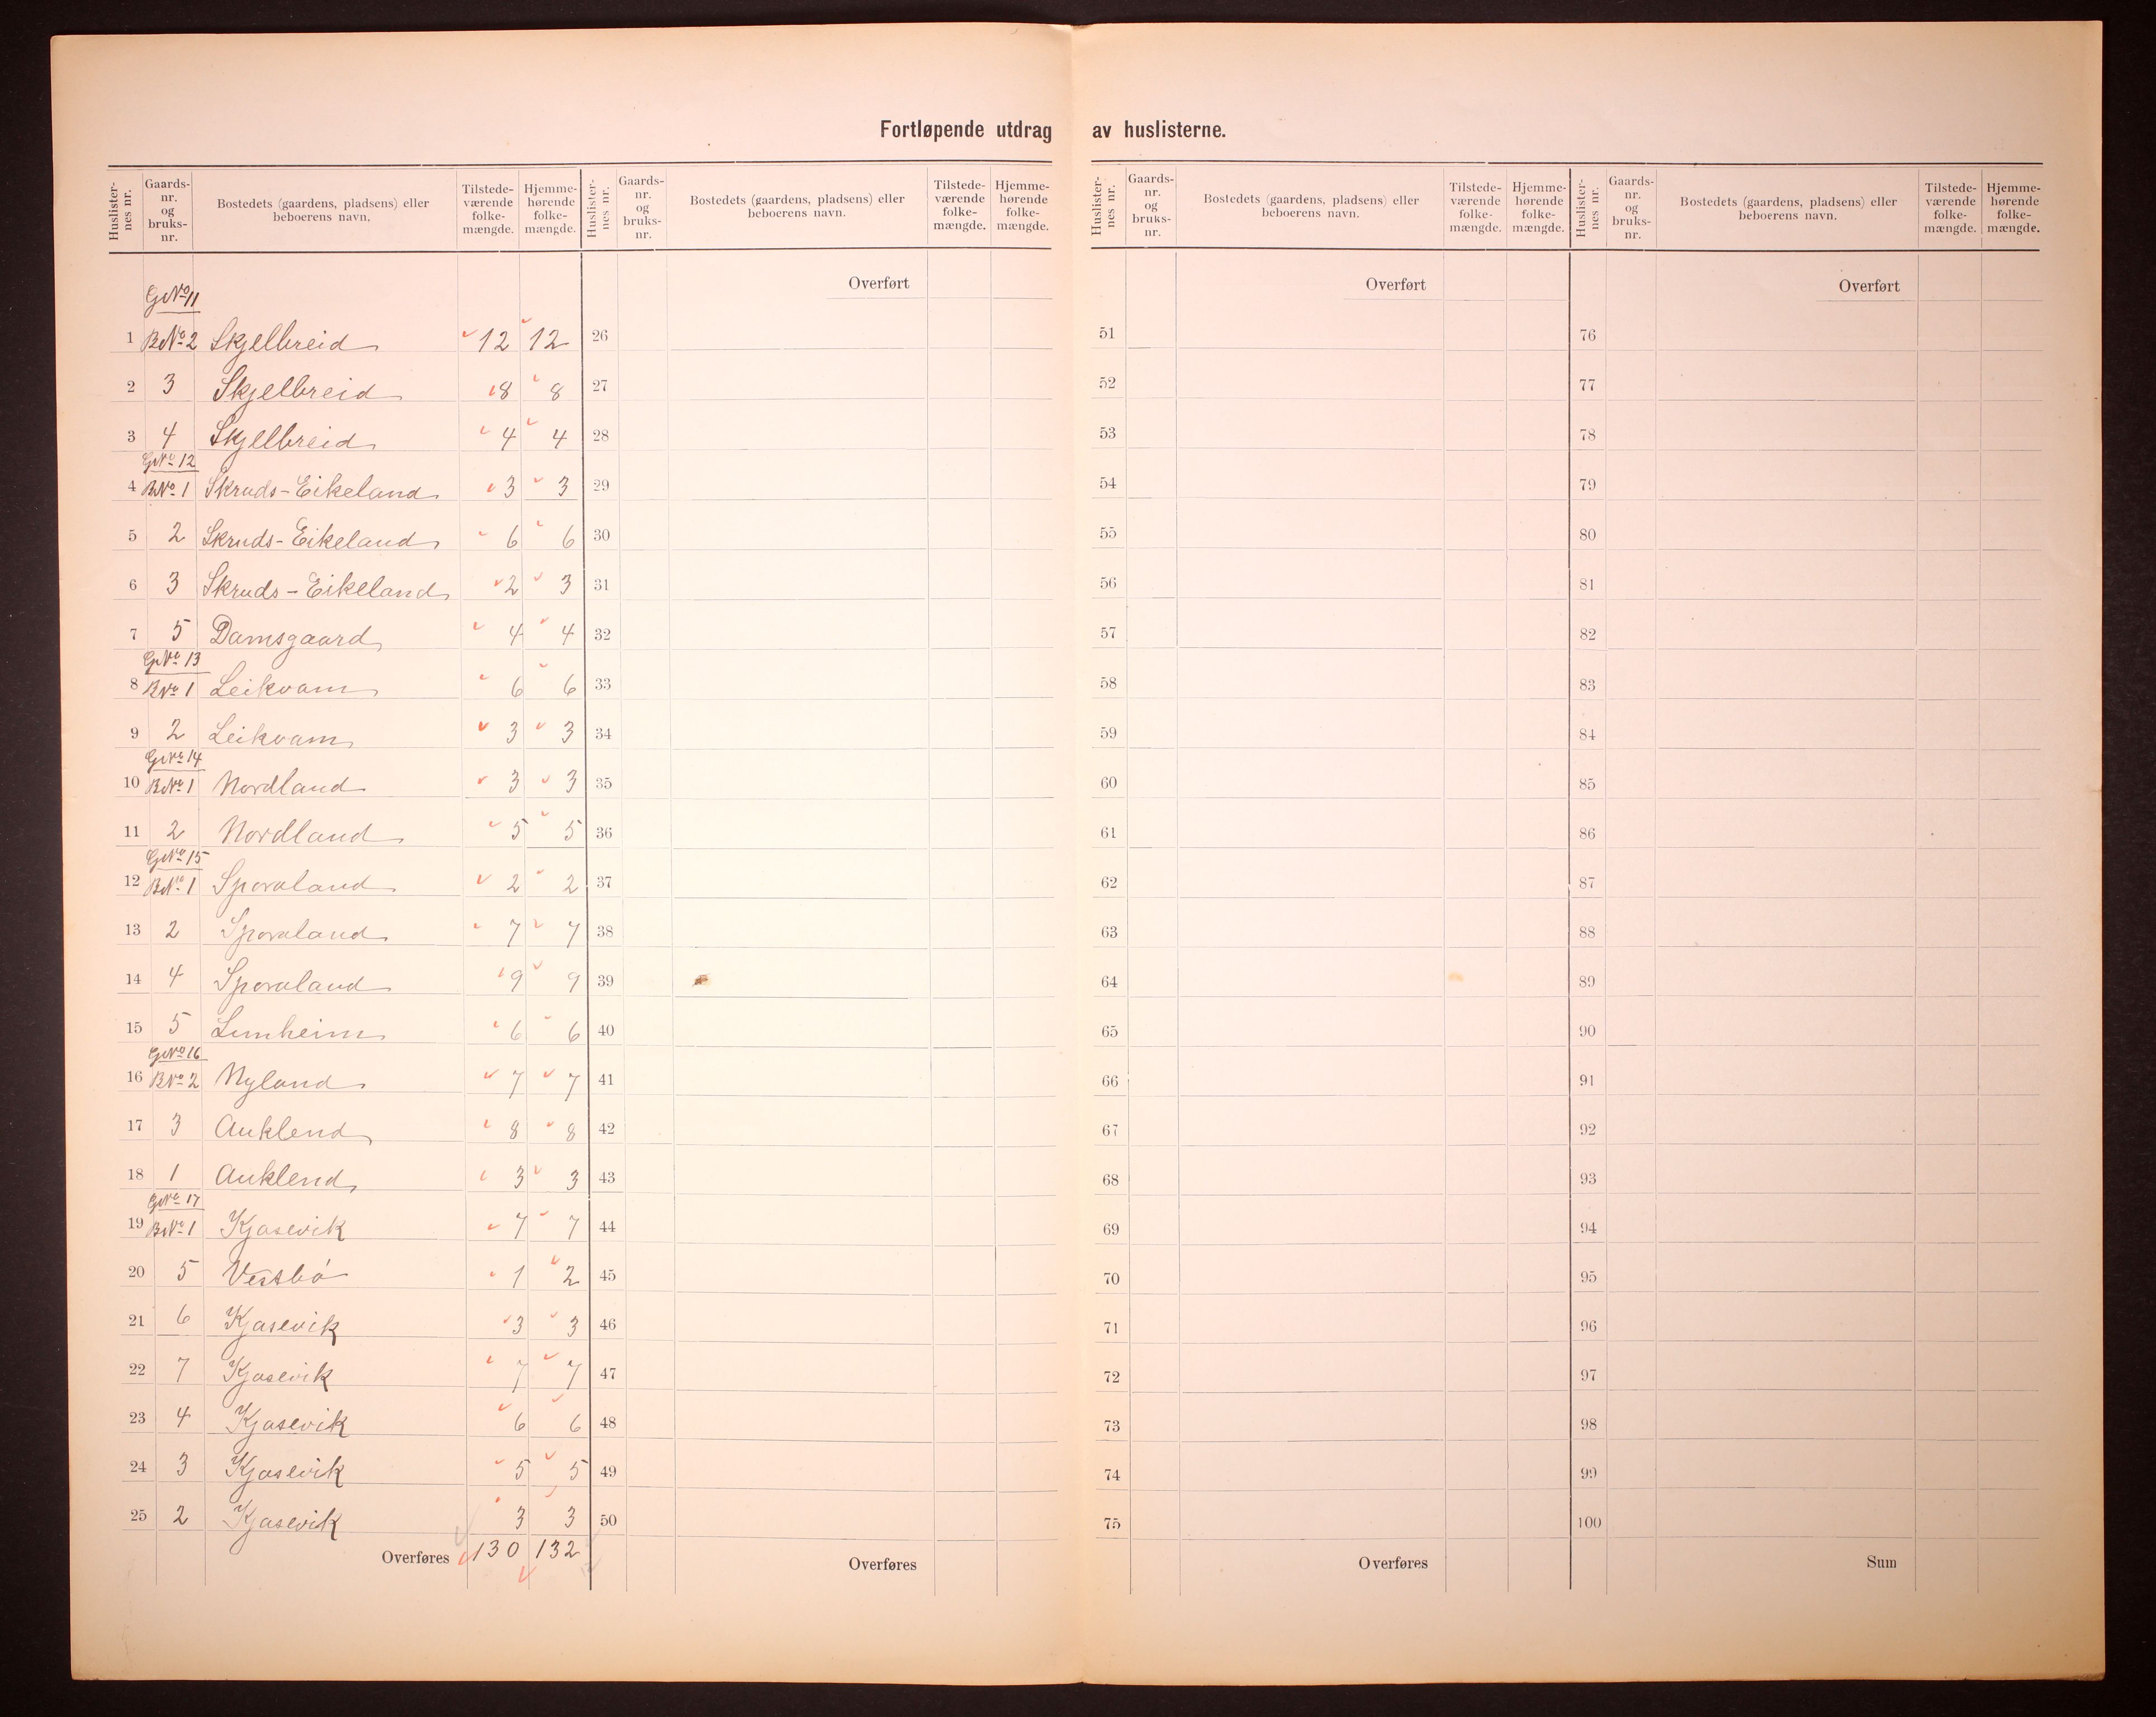 Fortløpende utdrag av huslisterne.
Huslisternes nr. Gaards-nr. og bruks-nr. Bostedets (gaardens, pladsens) eller beboerens navn. Tilstede-værende folke-mængde. Hjemme-hørende folke-mængde. Huslisternes nr. Gaards-nr. og bruks-nr. Bostedets (gaardens, pladsens) eller beboerens navn. Tilstede-værende folke-mængde. Hjemme-hørende folke-mængde. Huslisternes nr. Gaards-nr. og bruks-nr. Bostedets (gaardens, pladsens) eller beboerens navn. Tilstede-værende folke-mængde. Hjemme-hørende folke-mængde. Huslisternes nr. Gaards-nr. og bruks-nr. Bostedets (gaardens, pladsens) eller beboerens navn. Tilstede-værende folke-mængde. Hjemme-hørende folke-mængde.
Overført Overført Overført
GNo 11
1 BNo 2 Skjelbreid 12 12 26 51 76
2 3 Skjelbreid 8 8 27 52 77
3 4 Skjelbreid 4 4 28 53 78
GNo 12
4 BNo 1 Skruds-Eikeland 3 3 29 54 79
5 2 Skruds-Eikeland 6 6 30 55 80
6 3 Skruds-Eikeland 2 3 31 56 81
7 5 Damsgaard 4 4 32 57 82
GNo 13
8 BNo 1 Leikvam 6 6 33 58 83
9 2 Leikvam 3 3 34 59 84
GNo 14
10 BNo 1 Nordland 3 3 35 60 85
11 2 Nordland 5 5 36 61 86
GNo 15
12 BNo 1 Sporaland 2 2 37 62 87
13 2 Sporaland 7 7 38 63 88
14 4 Sporaland 9 9 39 64 89
15 5 Lunheim 6 6 40 65 90
GNo 16
16 BNo 2 Nyland 7 7 41 66 91
17 3 Auklend 8 8 42 67 92
18 1 Auklend 3 3 43 68 93
GNo 17
19 BNo 1 Kjosevik 7 7 44 69 94
20 5 Vestbø 1 2 45 70 95
21 6 Kjosevik 3 3 46 71 96
22 7 Kjosevik 7 7 47 72 97
23 4 Kjosevik 6 6 48 73 98
24 3 Kjosevik 5 5 49 74 99
25 2 Kjosevik 3 3 50 75 100
Overføres 130 132 Overføres Overføres Sum